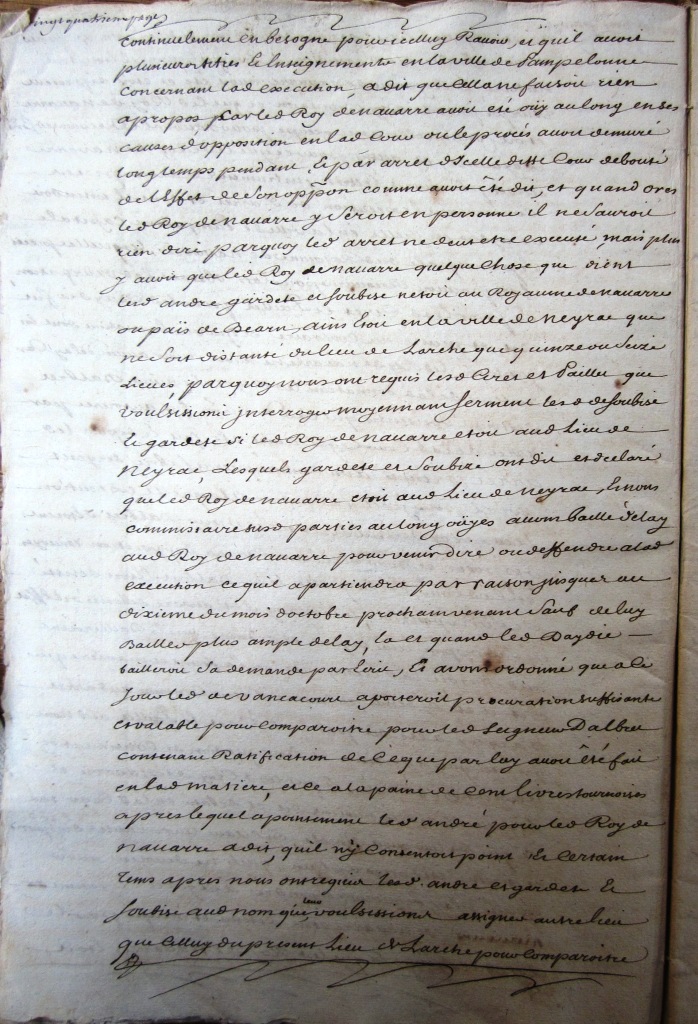 vingt quatrieme page
Continuellement en besogne pour icelluy Ravoir, et quil avoit
plusieurs titres & Enseignements en la ville de Pampelonne
concernant lad execution, a dit que cella ne faisoit rien
apropos par led Roy de navarre avoit eté oüy au long en ses
causes d'opposition en lad Cour ou le procés avoit demuré
long temps pendant, & par arret d'icelle ditte Cour debouté
de l'Effet de son oppõn comme avoit êté dit, et quand ores
led Roy de navarre y seroit en personne il ne sauroit
rien dire parquoy led arret ne deut etre executé, mais plus
y avoit que led Roy de navarre quelque chose que dient
lesd andre gardete et soubise netoit au Royaume de navarre
ou païs de Bearn, ains Etoit en la ville de neyrac que
ne soit distante du lieu de Larche que quinze ou seize
Lieues, parquoy nous ont requis lesd Ceres et Paillet que
voulsissions jnterroger moyennant serment lesd de soubise
& gardete si led Roy de navarre etoit aud Lieu de
neyrac, Lesquels gardete et soubize ont dit et declaré
que led Roy de navarre etoit aud Lieu de neyrac, Et nous
commissaire susd parties au long oüyes avons baillé delay
aud Roy de navarre pour venir dire ou deffendre a lad
execution ce quil apartiendra par raison jusques au
dixieme du mois doctobre prochain venant sauf de luy
Bailler plus ample delay, la et quand led Daydie
bailleroit sa demande par Ecrit, Et avons ordonné que a ce
Jour led de vancacourt aporteroit procuration suffisante
et valable pour comparoitre pour led Seigneur Dalbret
contenant Ratification de ce que par luy avoit êté fait
en lad matiere, et ce a la paine de Cent livres tournoises
apres lequel apointement led andré pour led Roy de
navarre a dit, quil n'y Consentoit point Et Certain
tems apres nous ont requis lesd. andre et gardete Et
Soubise aud nom que leur voulsissions assigner autre lieu
que celluy du present Lieu de Larche pour Comparoitre